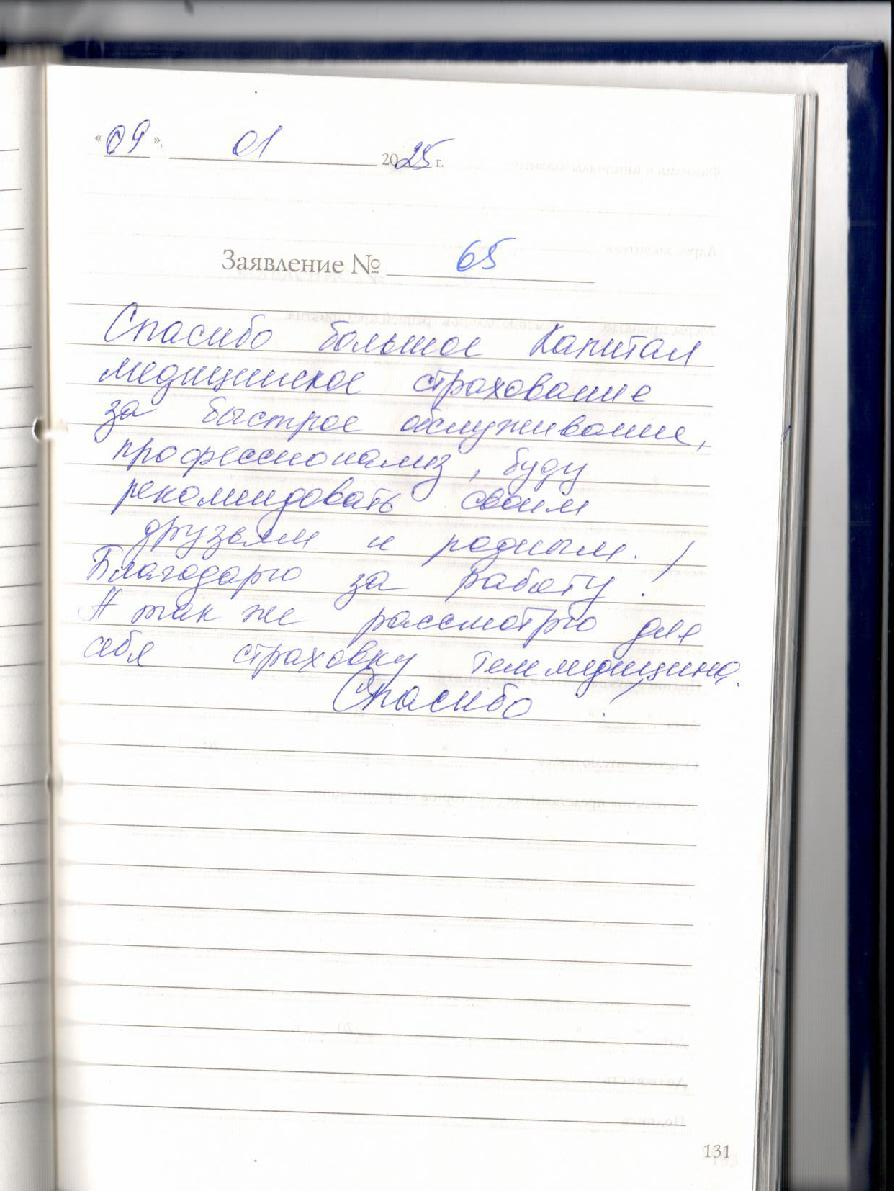 «09». 01 2025 г.
Заявление № 65
Спасибо большое Капитал
медицинское страхование
за быстрое обслуживание,
профессионализ, буду
рекомендовать своим
друзьям и родным.!
Благодарю за работу!
А так же рассмотрю для
себя страховку телемедицина.
Спасибо!
131